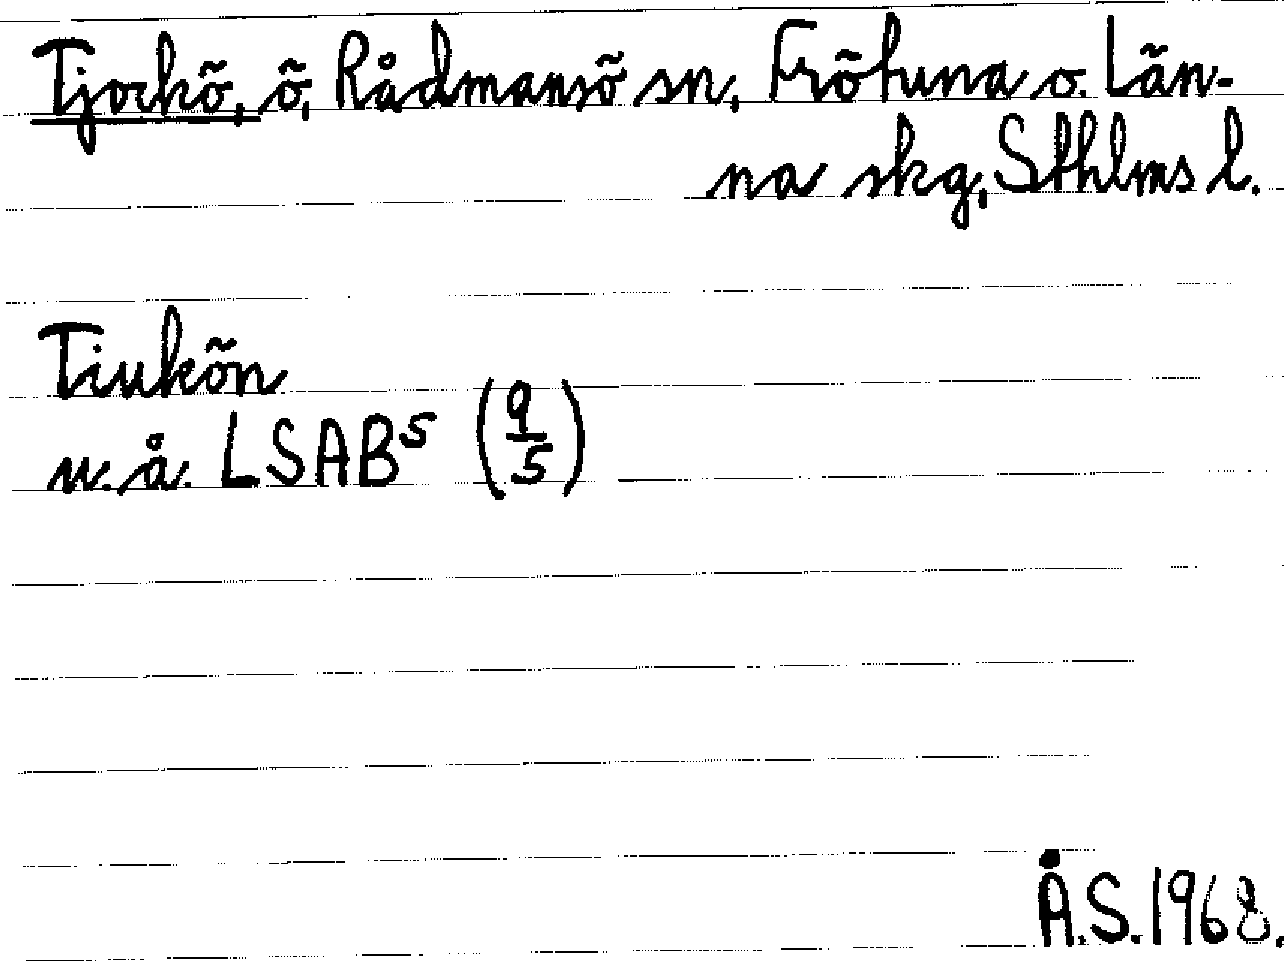 Tjockö, ö, Rådmansö sn, Frötuna o. Län-
na skg, Sthlms l.
Tiukön
u.å. LSAB⁵ (9/5)
Å.S. 1968.